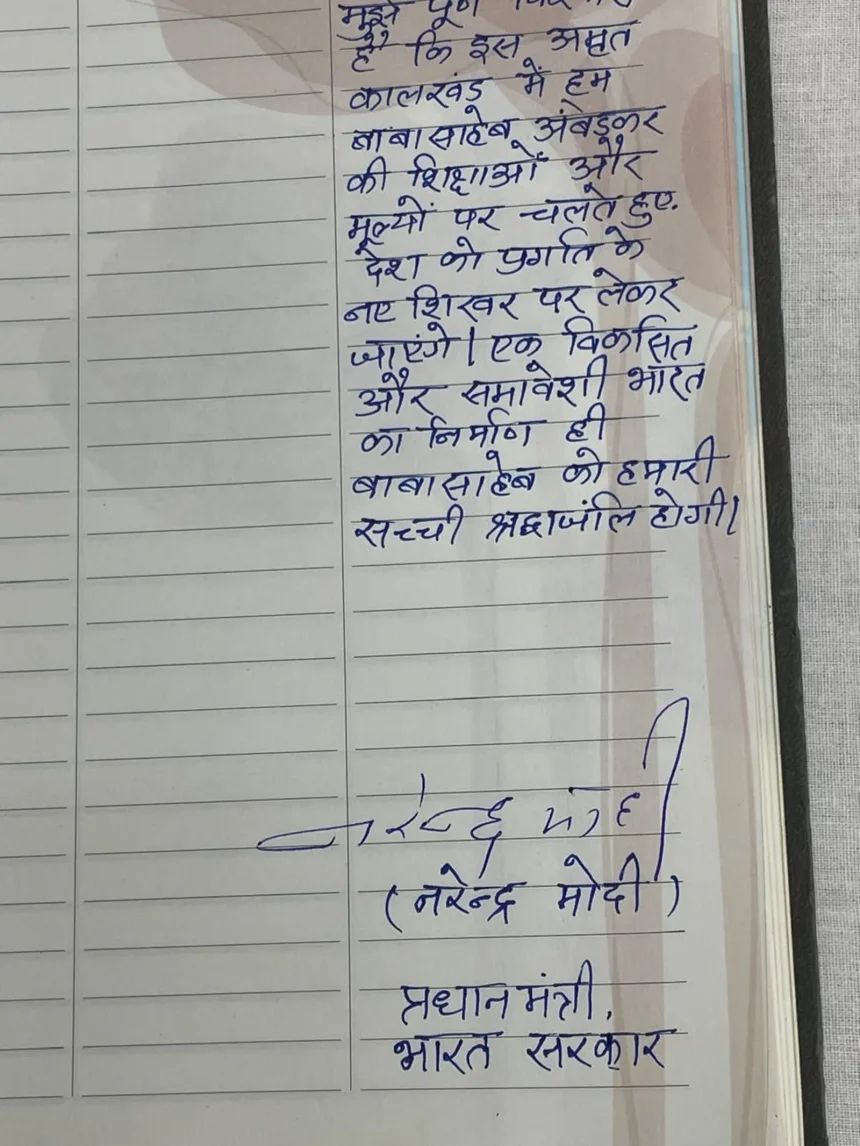 मुझे पूर्ण
है कि इस अमृत
कालखंड में हम
बाबासाहेब अंबेडकर
की शिक्षाओं और
मूल्यों पर चलते हुए
देश को प्रगति के
नए शिखर पर लेकर
जाएंगे। एक विकसित
और समावेशी भारत
का निर्माण ही
बाबासाहेब को हमारी
सच्ची श्रद्धाजंलि होगी।
नरेन्द्र मोदी
(नरेन्द्र मोदी)
प्रधान मंत्री,
भारत सरकार